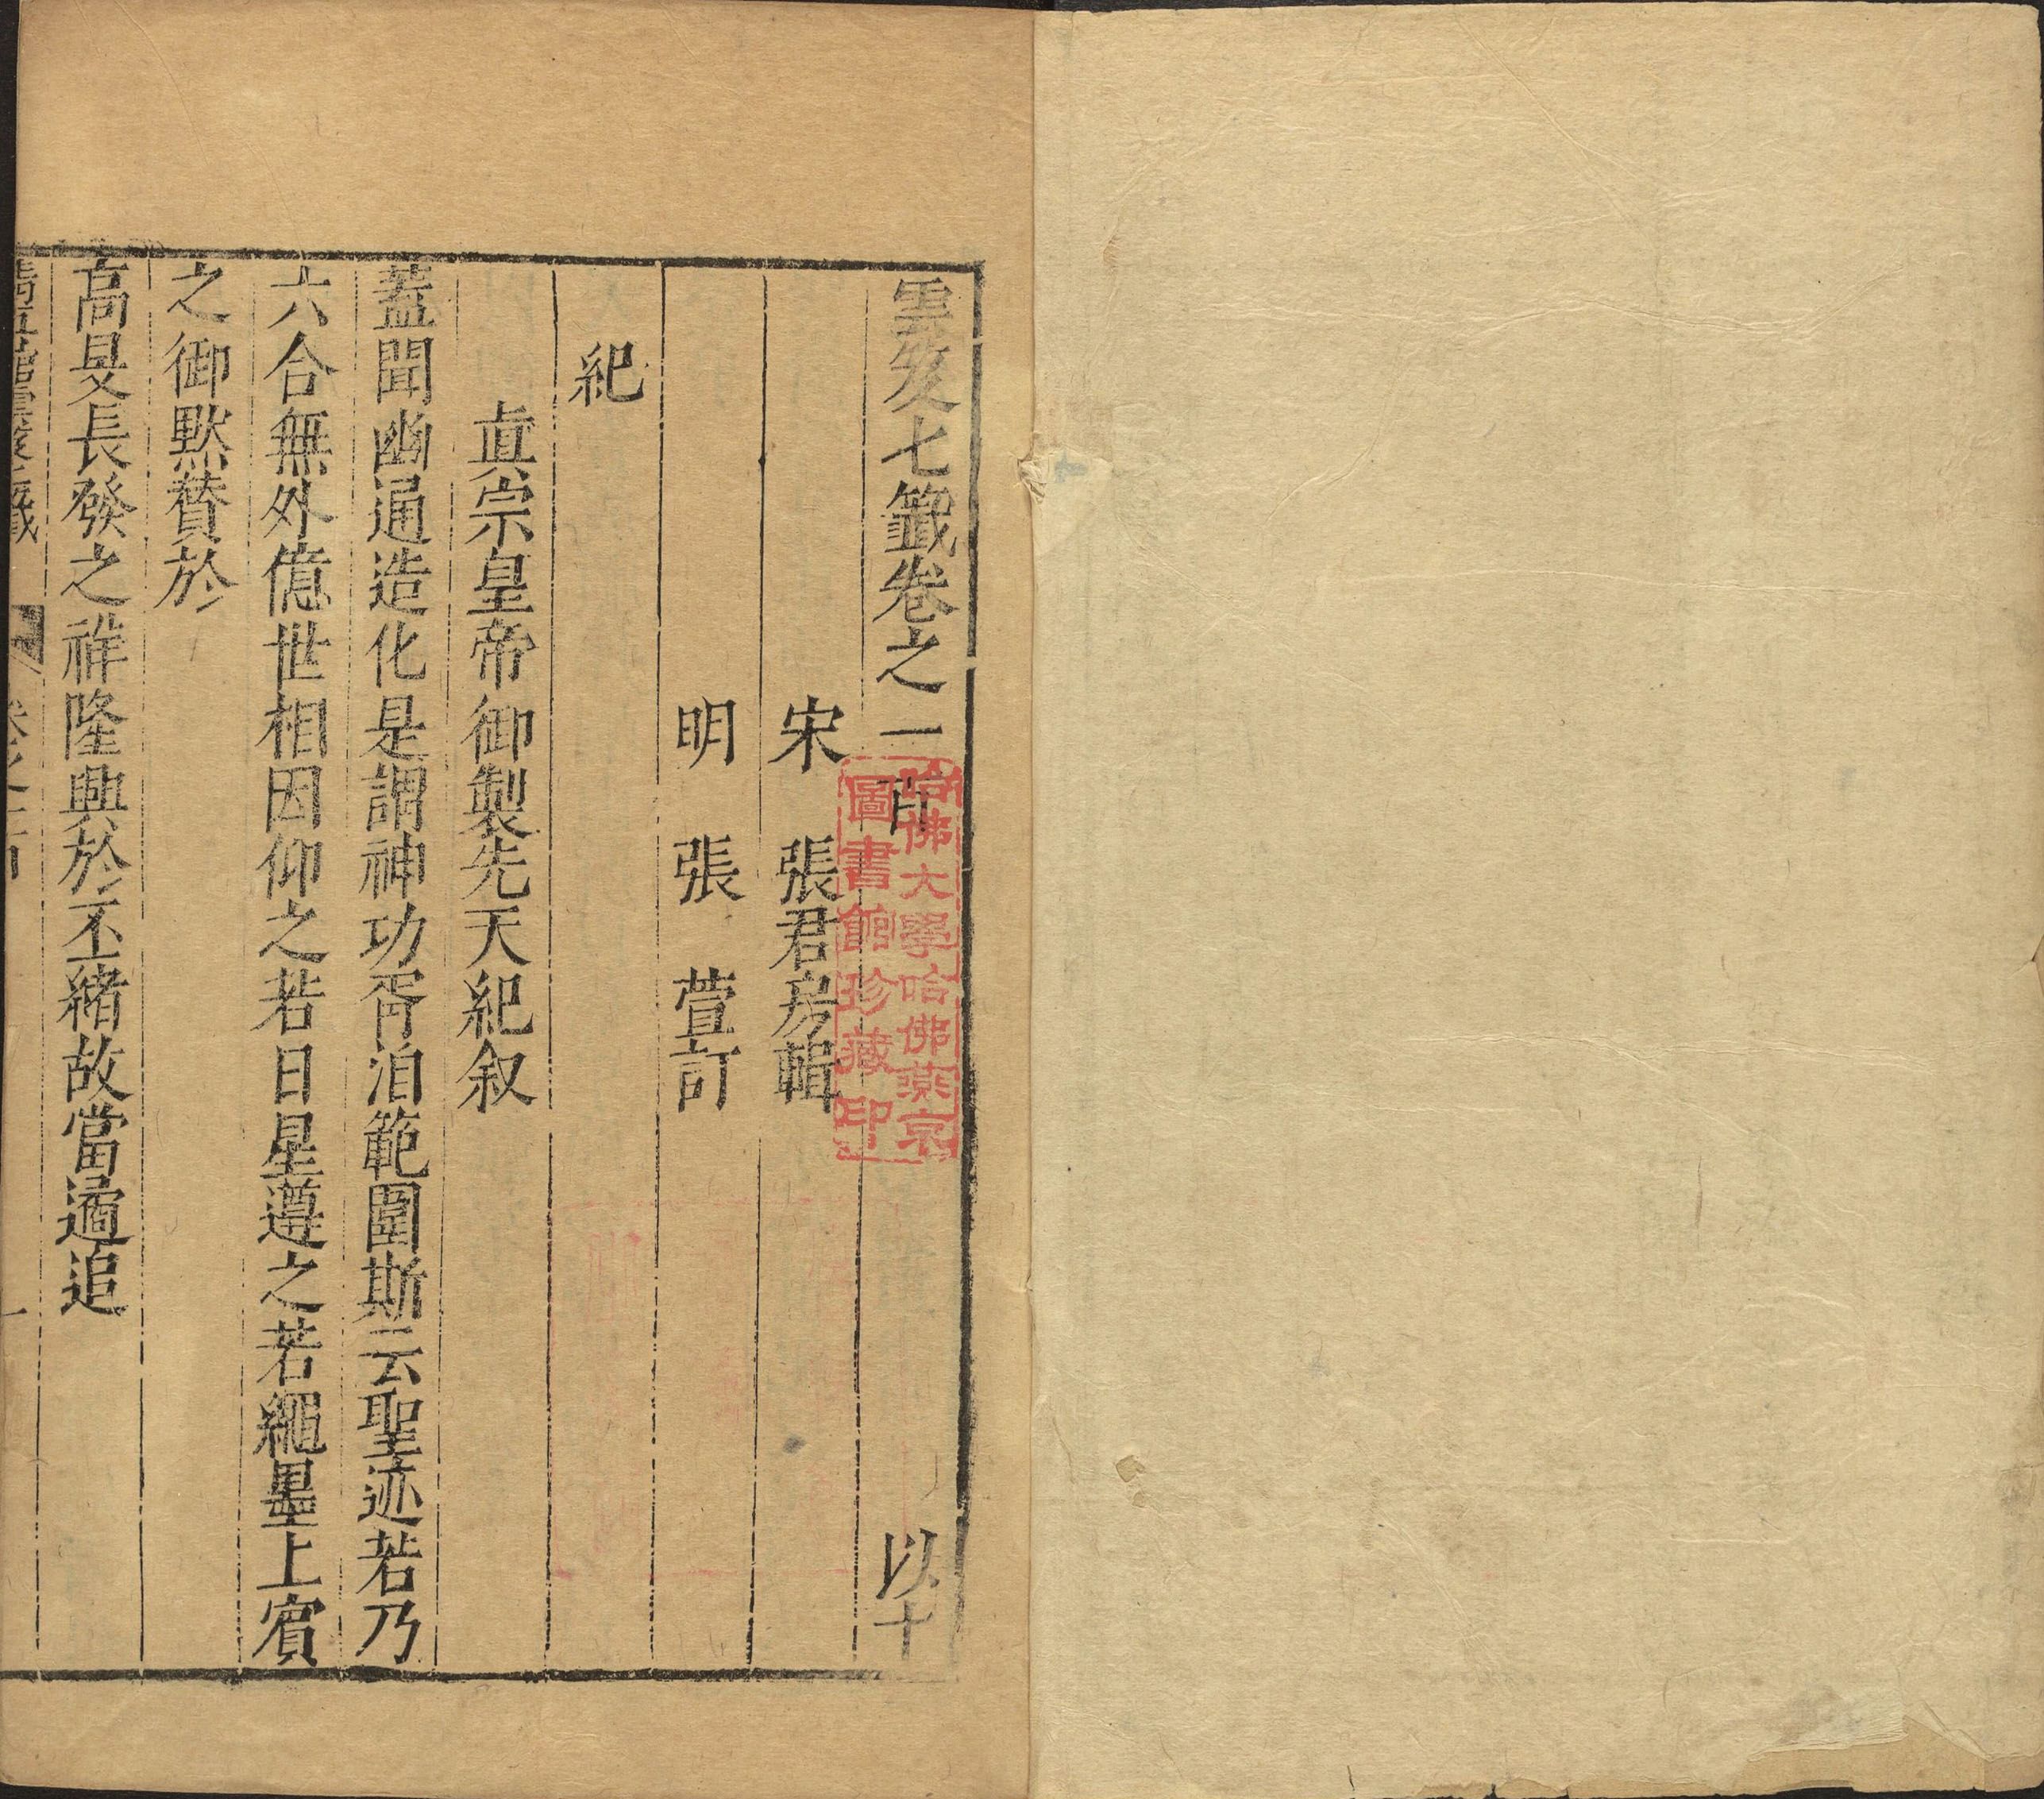 雲笈七籖卷之一 百 以十
宋 張君房輯
明 張 萱訂
紀
真宗皇帝御製先天紀叙
葢聞幽通造化是謂神功胥洎範圍斯云聖迹若乃
六合無外億世相因仰之若日星遵之若繩墨上賓
之御默贊於
高旻長發之祥隆興於丕緒故當遹追
哈佛大學哈佛燕京
圖書館珍藏印